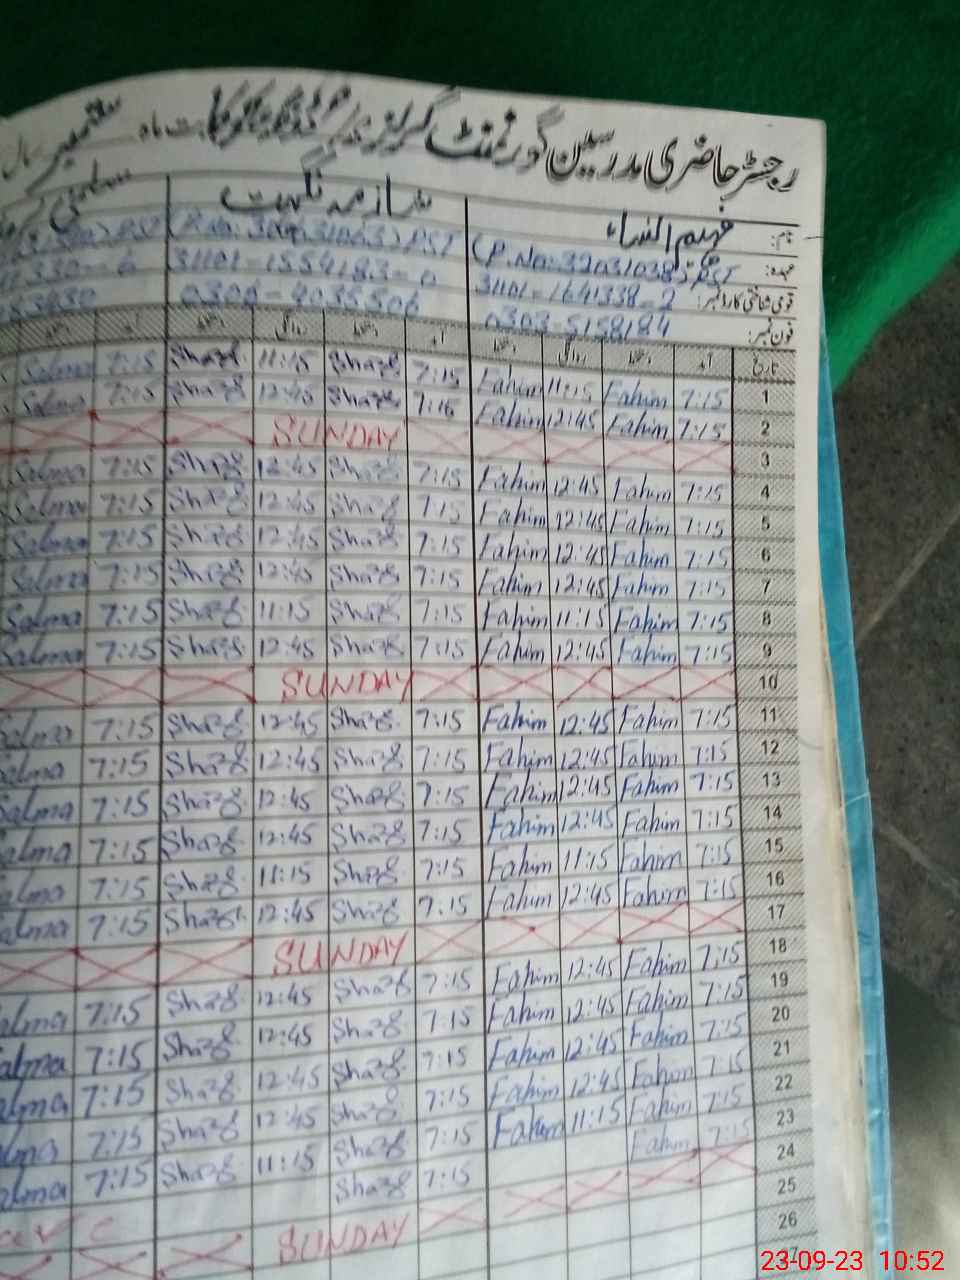 رجسٹر حاضری مدرسین گورنمنٹ گرلز بابت ماہ ستمبر سال
نام: فہیم النساء شازمہ نگہت سلمیٰ
عہدہ: (P.No: 32031038) PST PST PST
قومی شناختی کارڈ نمبر: 31101-1641338-2 31101-1554183-0 330-6
فون نمبر: 0303-5158184 0306-4035506 83430
تاریخ آمد دستخط روانگی دستخط آمد دستخط روانگی دستخط
Salma 7:15 Shazg 11:15 Shazg 7:15 Fahim 11:15 Fahim 7:15 1
Salma 7:15 Shazg 12:45 Shazg 7:15 Fahim 12:45 Fahim 7:15 2
SUNDAY 3
Salma 7:15 Shazg 12:45 Shazg 7:15 Fahim 12:45 Fahim 7:15 4
Salma 7:15 Shazg 12:45 Shazg 7:15 Fahim 12:45 Fahim 7:15 5
Salma 7:15 Shazg 12:45 Shazg 7:15 Fahim 12:45 Fahim 7:15 6
Salma 7:15 Shazg 12:45 Shazg 7:15 Fahim 12:45 Fahim 7:15 7
Salma 7:15 Shazg 11:15 Shazg 7:15 Fahim 11:15 Fahim 7:15 8
Salma 7:15 Shazg 12:45 Shazg 7:15 Fahim 12:45 Fahim 7:15 9
SUNDAY 10
Salma 7:15 Shazg 12:45 Shazg 7:15 Fahim 12:45 Fahim 7:15 11
alma 7:15 Shazg 12:45 Shazg 7:15 Fahim 12:45 Fahim 7:15 12
alma 7:15 Shazg 12:45 Shazg 7:15 Fahim 12:45 Fahim 7:15 13
alma 7:15 Shazg 12:45 Shazg 7:15 Fahim 12:45 Fahim 7:15 14
alma 7:15 Shazg 11:15 Shazg 7:15 Fahim 11:15 Fahim 7:15 15
alma 7:15 Shazg 12:45 Shazg 7:15 Fahim 12:45 Fahim 7:15 16
SUNDAY 17
alma 7:15 Shazg 12:45 Shazg 7:15 Fahim 12:45 Fahim 7:15 18
alma 7:15 Shazg 12:45 Shazg 7:15 Fahim 12:45 Fahim 7:15 19
alma 7:15 Shazg 12:45 Shazg 7:15 Fahim 12:45 Fahim 7:15 20
alma 7:15 Shazg 12:45 Shazg 7:15 Fahim 12:45 Fahim 7:15 21
alma 7:15 Shazg 11:15 Shazg 7:15 Fahim 11:15 Fahim 7:15 22
Shazg 7:15 Fahim 7:15 23
SUNDAY 24
25
26
23-09-23 10:52